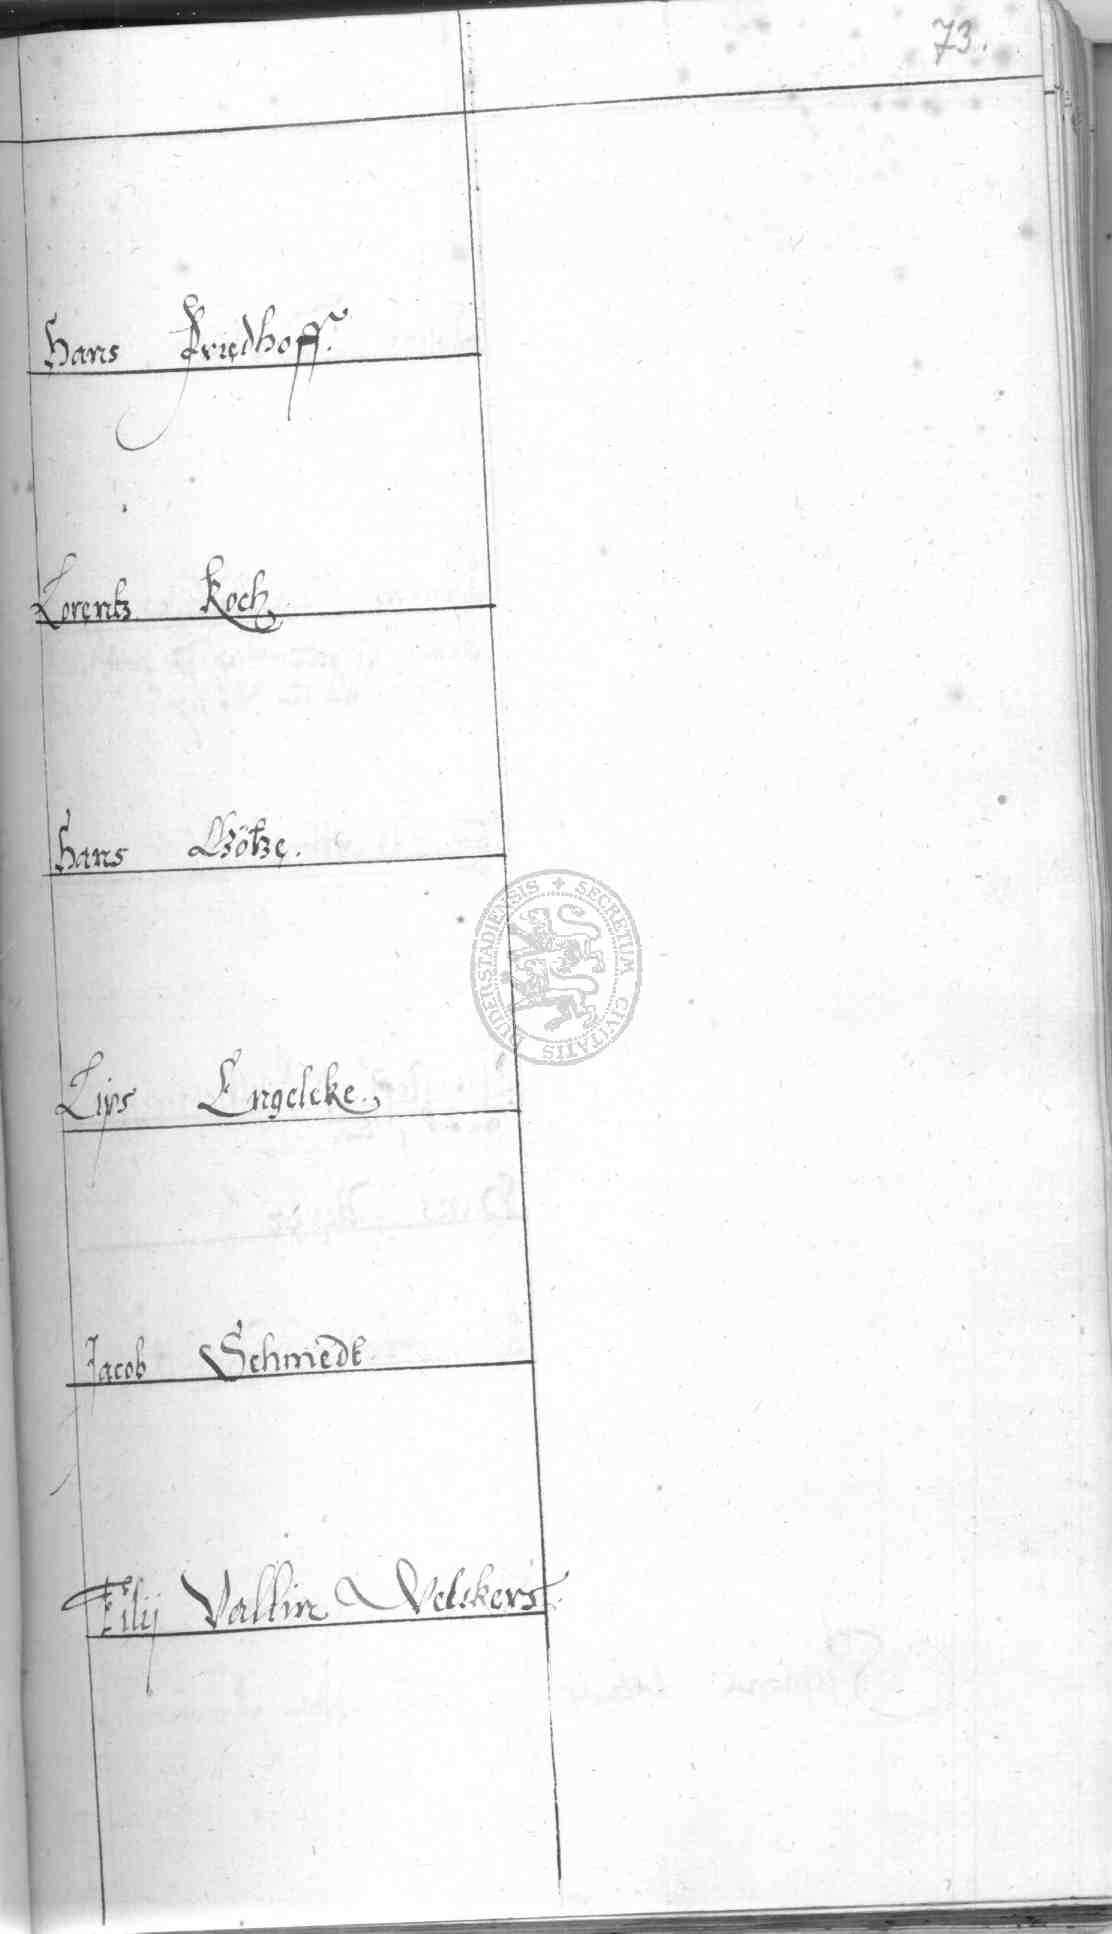 73.
Hans Friedhoff.
Lorentz Koch
Hans Götze.
Lips Engelcke.
Jacob Schmedt
Filij Valtin Welckers
SECRETUM CIVITATIS DUDERSTADIENSIS